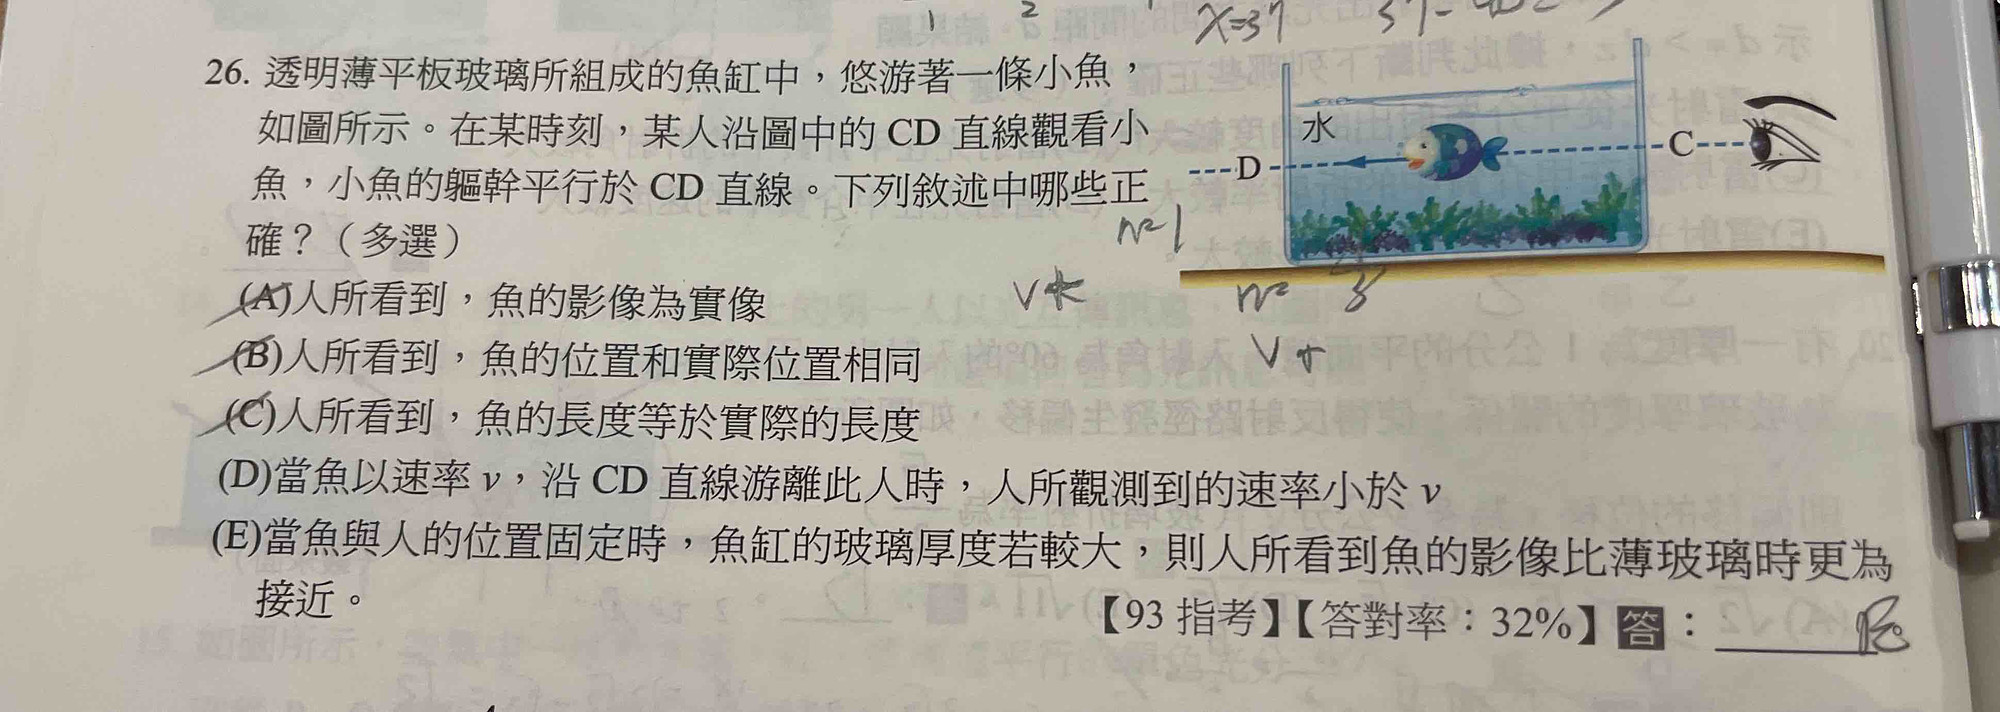 x=37
26. 透明薄平板玻璃所組成的魚缸中，悠游著一條小魚，
如圖所示。在某時刻，某人沿圖中的 CD 直線觀看小
魚，小魚的軀幹平行於 CD 直線。下列敘述中哪些正
確？（多選）
水
D
C
n=1
(A)人所看到，魚的影像為實像
(B)人所看到，魚的位置和實際位置相同
(C)人所看到，魚的長度等於實際的長度
(D)當魚以速率 v，沿 CD 直線游離此人時，人所觀測到的速率小於 v
(E)當魚與人的位置固定時，魚缸的玻璃厚度若較大，則人所看到魚的影像比薄玻璃時更為
接近。
【93 指考】【答對率：32%】答：